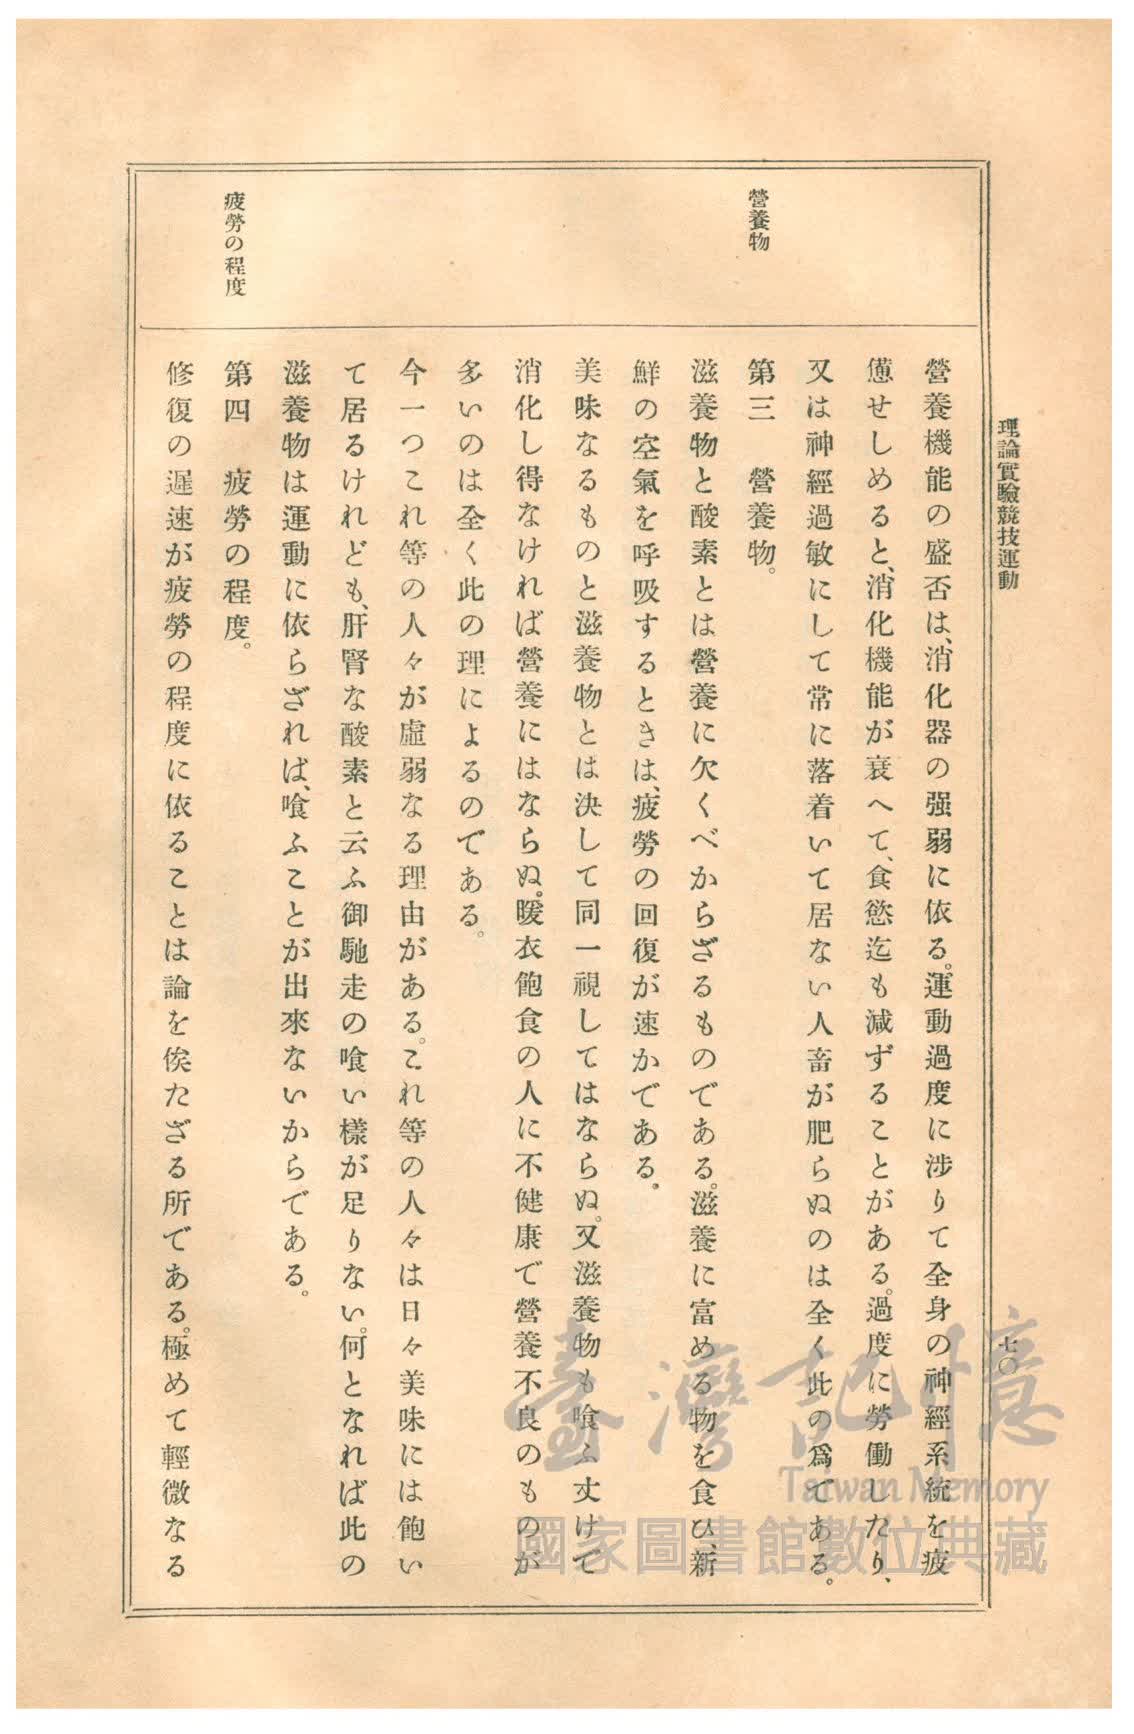 理論實驗競技運動
七〇
營養機能の盛否は、消化器の强弱に依る。運動過度に涉りて全身の神經系統を疲
憊せしめると、消化機能が衰へて、食慾迄も減ずることがある。過度に勞働したり、
又は神經過敏にして常に落着いて居ない人畜が肥らぬのは全く此の爲である。
營養物
第三　營養物。
滋養物と酸素とは營養に欠くべからざるものである。滋養に富める物を食ひ、新
鮮の空氣を呼吸するときは、疲勞の回復が速かである。
美味なるものと滋養物とは決して同一視してはならぬ。又滋養物も喰ふ丈けで
消化し得なければ營養にはならぬ。暖衣飽食の人に不健康で營養不良のものが
多いのは全く此の理によるのである。
今一つこれ等の人々が虛弱なる理由がある。これ等の人々は日々美味には飽い
て居るけれども、肝腎な酸素と云ふ御馳走の喰い樣が足りない。何となれば此の
滋養物は運動に依らざれば、喰ふことが出來ないからである。
疲勞の程度
第四　疲勞の程度。
修復の遲速が疲勞の程度に依ることは論を俟たざる所である。極めて輕微なる
臺灣記憶
Taiwan Memory
國家圖書館數位典藏